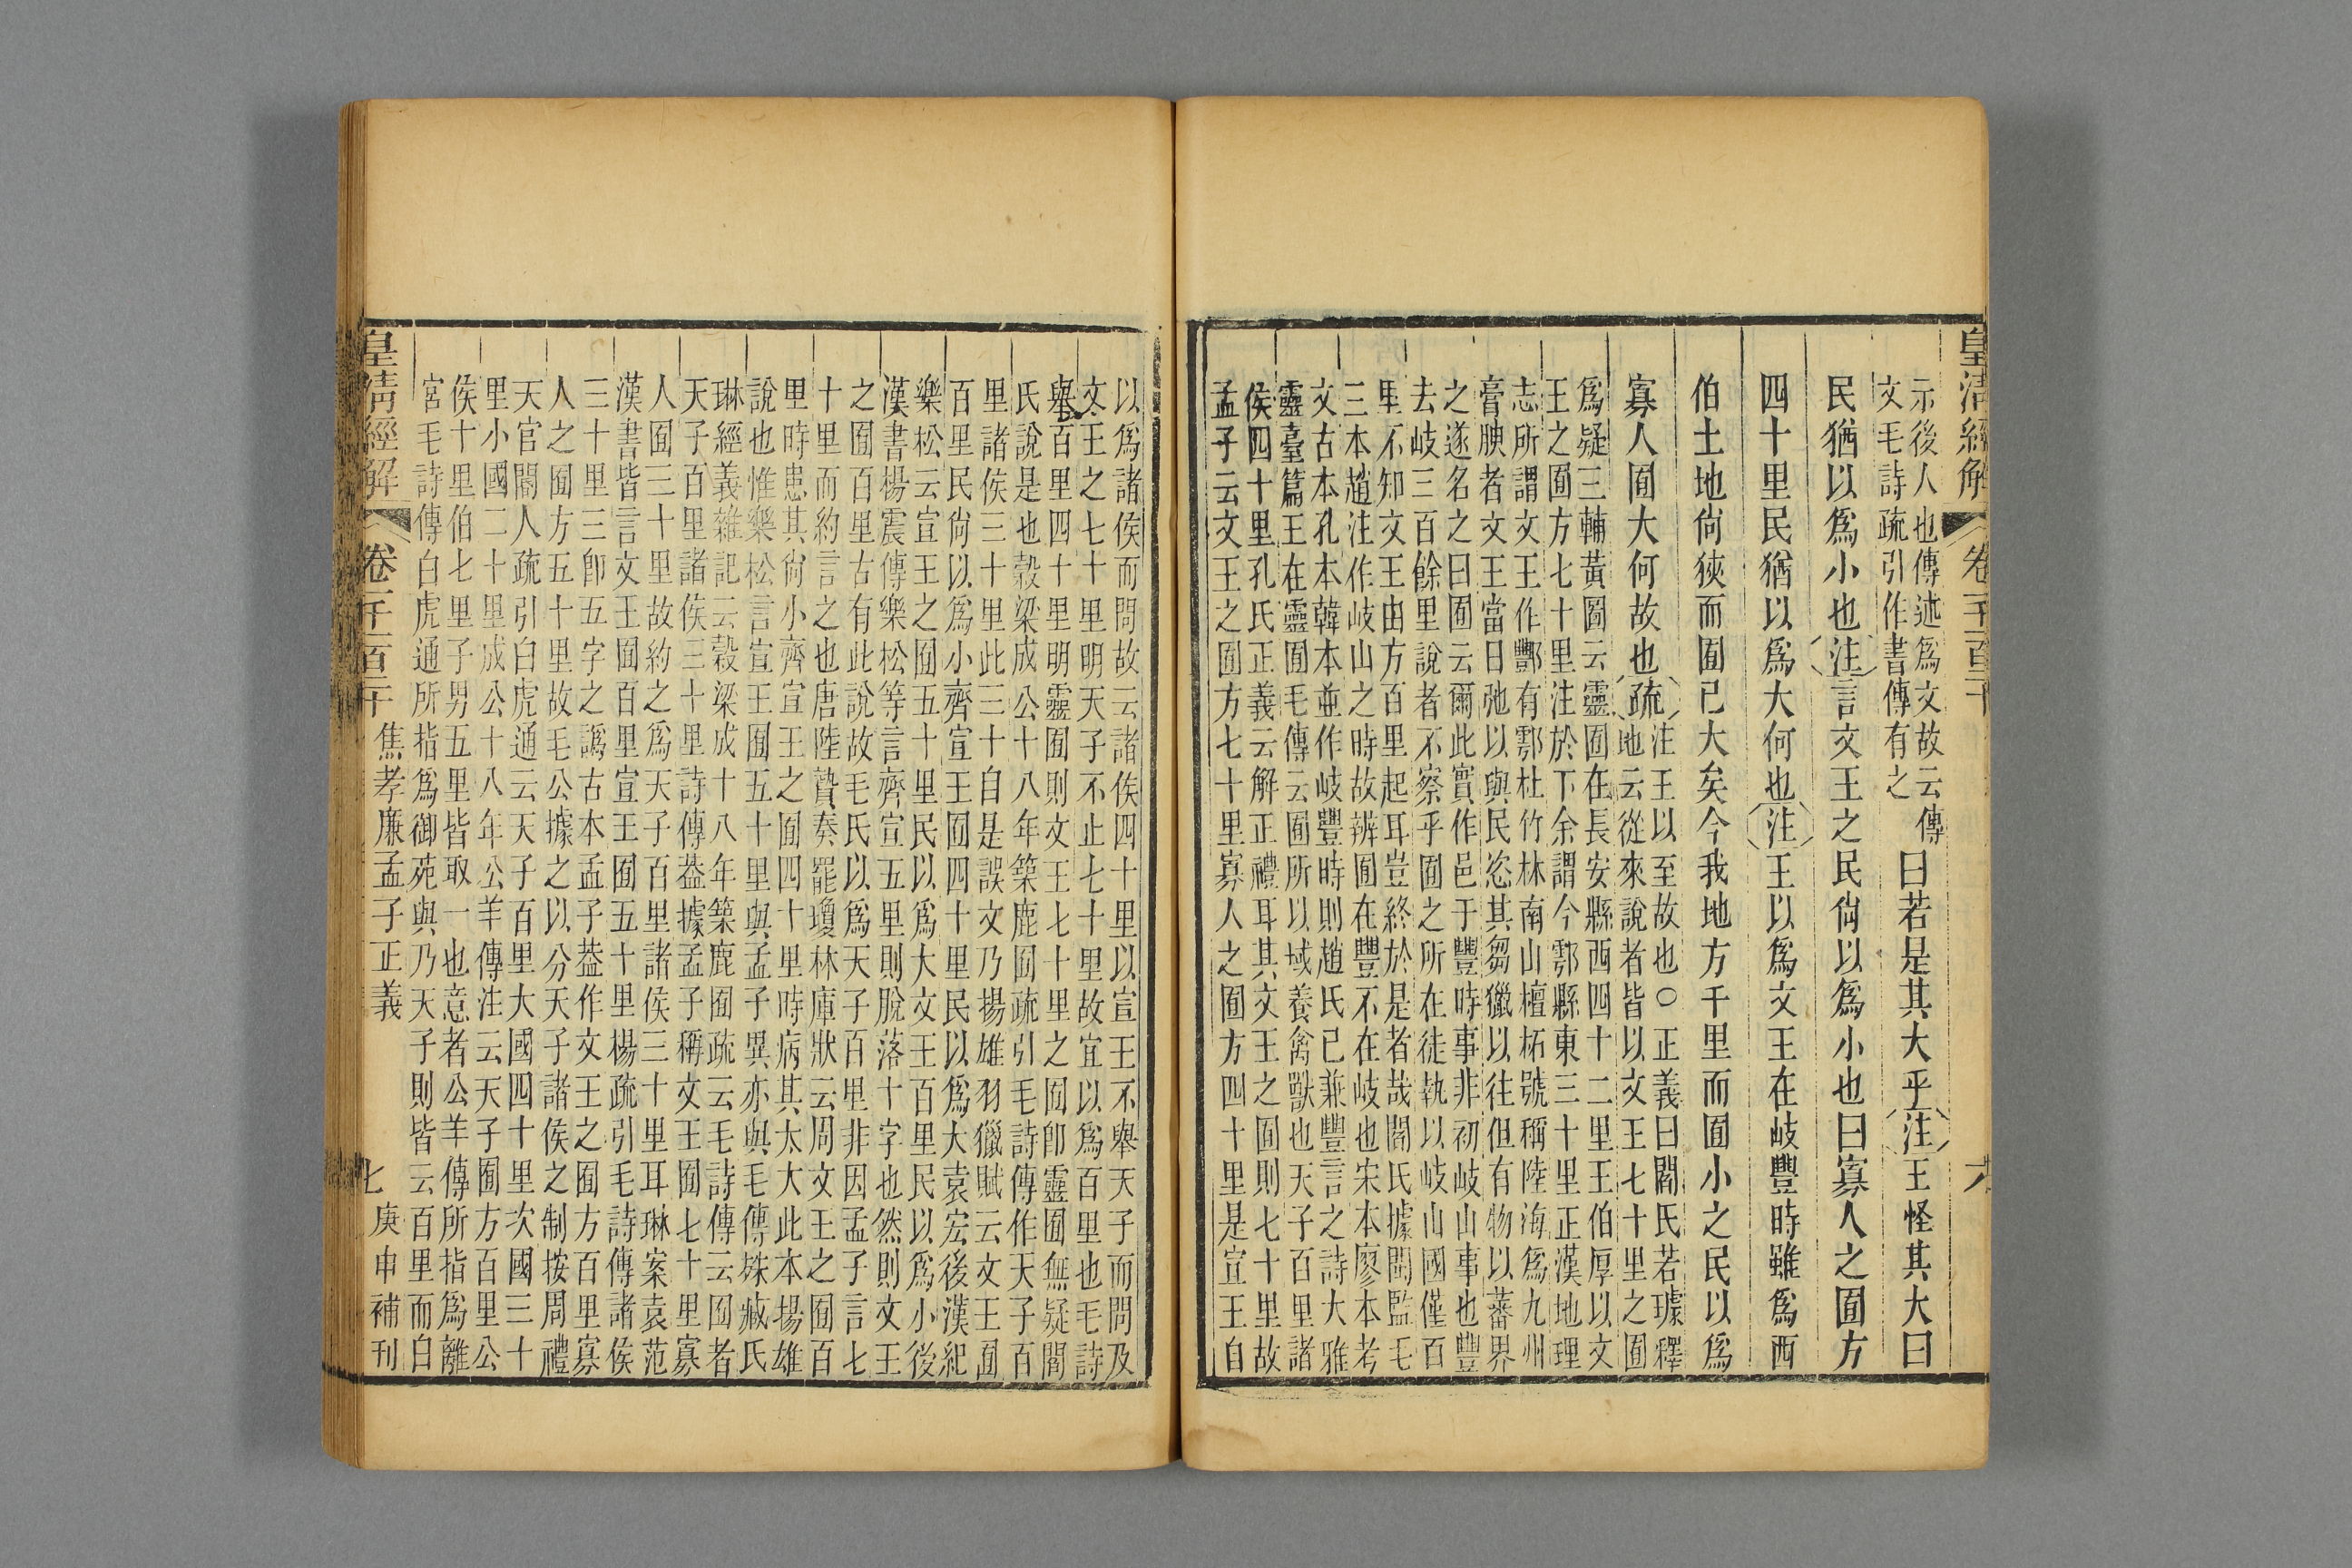 皇清經解
卷一千一百二十
六
示後人也傳述爲文故云傳
文毛詩疏引作書傳有之
曰若是其大乎注王怪其大曰
民猶以爲小也注言文王之民尙以爲小也曰寡人之囿方
四十里民猶以爲大何也注王以爲文王在岐豐時雖爲西
伯土地尙狹而囿已大矣今我地方千里而囿小之民以爲
寡人囿大何故也疏
注王以至故也○正義曰閻氏若璩釋
地云從來說者皆以文王七十里之囿
爲疑三輔黃圖云靈囿在長安縣西四十二里王伯厚以文
王之囿方七十里注於下余謂今鄠縣東三十里正漢地理
志所謂文王作酆有鄠杜竹林南山檀柘號稱陸海爲九州
膏腴者文王當日弛以與民恣其芻獵以往但有物以蕃界
之遂名之曰囿云爾此實作邑于豐時事非初岐山事也豐
去岐三百餘里說者不察乎囿之所在徒執以岐山國僅百
里不知文王由方百里起耳豈終於是者哉閻氏據閩監毛
三本趙注作岐山之時故辨囿在豐不在岐也宋本廖本考
文古本孔本韓本並作岐豐時則趙氏已兼豐言之詩大雅
靈臺篇王在靈囿毛傳云囿所以域養禽獸也天子百里諸
侯四十里孔氏正義云解正禮耳其文王之囿則七十里故
孟子云文王之囿方七十里寡人之囿方四十里是宣王自
以爲諸侯而問故云諸侯四十里以宣王不舉天子而問及
文王之七十里明天子不止七十里故宜以爲百里也毛詩
舉百里四十里明靈囿則文王七十里之囿卽靈囿無疑閻
氏說是也穀梁成公十八年築鹿囿疏引毛詩傳作天子百
里諸侯三十里此三十自是誤文乃揚雄羽獵賦云文王囿
百里民尙以爲小齊宣王囿四十里民以爲大袁宏後漢紀
樂松云宣王之囿五十里民以爲大文王百里民以爲小後
漢書楊震傳樂松等言齊宣五里則脫落十字也然則文王
之囿百里古有此說故毛氏以爲天子百里非因孟子言七
十里而約言之也唐陸贄奏罷瓊林庫狀云周文王之囿百
里時患其尙小齊宣王之囿四十里時病其太大此本揚雄
說也惟樂松言宣王囿五十里與孟子異亦與毛傳殊臧氏
琳經義雜記云穀梁成十八年築鹿囿疏云毛詩傳云囿者
天子百里諸侯三十里詩傳葢據孟子稱文王囿七十里寡
人囿三十里故約之爲天子百里諸侯三十里耳琳案袁范
漢書皆言文王囿百里宣王囿五十里楊疏引毛詩傳諸侯
三十里三卽五字之譌古本孟子葢作文王之囿方百里寡
人之囿方五十里故毛公據之以分天子諸侯之制按周禮
天官閽人疏引白虎通云天子百里大國四十里次國三十
里小國二十里成公十八年公羊傳注云天子囿方百里公
侯十里伯七里子男五里皆取一也意者公羊傳所指爲離
宮毛詩傳白虎通所指爲御苑與乃天子則皆云百里而曰
皇清經解
卷一千一百二十
焦孝廉孟子正義
七
庚申補刊